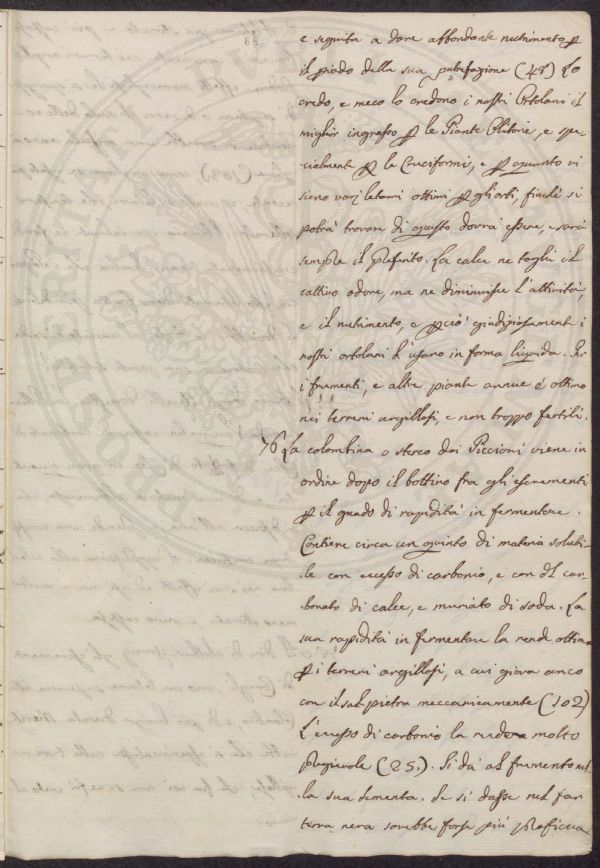 68
e seguita a dare abbondante nutrimento p
il piodo della sua putrefazione (48) Lo
credo, e meco lo credono i nostri Ortolani il
miglior ingrasso p le Piante Olitorie, e spe-
cialmente p le Cruciformi, e p quanto vi
sieno varj letami ottimi p gli orti, finchè si
potrà trovar di questo dovrà essere, e sarà
sempre il preferito. La calce ne toglie il
cattivo odore, ma ne diminuisce l'attività,
e il nutrimento, e pciò giudiziosamente i
nostri ortolani l'usano in forma liquida. Per
i frumenti, e altre piante annue è ottimo
nei terreni argillosi, e non troppo fertili.
76 La colombina o sterco dei Piccioni viene in
ordine dopo il bottino fra gli escrementi
p il grado di rapidità in fermentare.
Contiene circa un quinto di materia solubi-
le con eccesso di carbonio, e con del car-
bonato di calce, e muriato di soda. La
sua rapidità in fermentare la rende ottima
p i terreni argillosi, a cui giova anco
con il sal pietra meccanicamente (102)
L'eccesso di carbonio la rende molto
pregievole (25.). Si dà al frumento nel-
la sua sementa. Se si dasse nel far
terra nera sarebbe forse più proficua